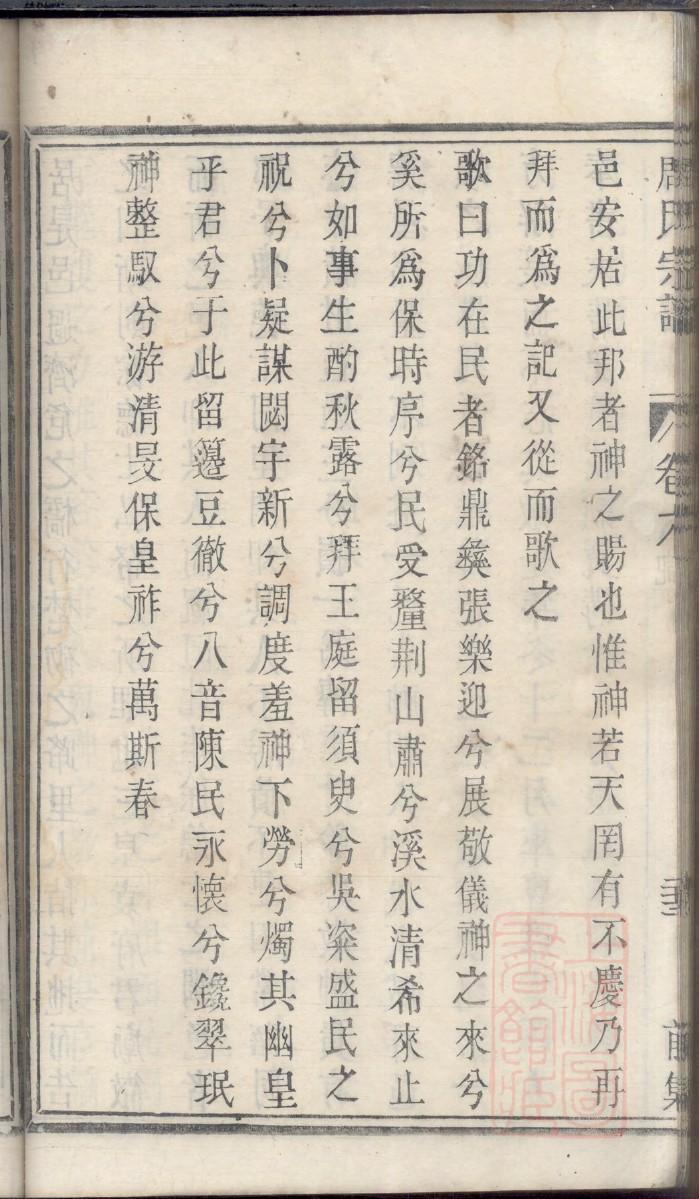 周氏宗譜
卷六
前集
邑安居此邦者神之賜也惟神若天罔有不慶乃再
拜而爲之記又從而歌之
歌曰功在民者銘鼎彝張樂迎兮展敬儀神之來兮
奚所爲保時序兮民受釐荆山肅兮溪水清希來止
兮如事生酌秋露兮拜王庭留須臾兮吳粢盛民之
祝兮卜疑謀閟宇新兮調度羞神下勞兮燭其幽皇
乎君兮于此留籩豆徹兮八音陳民永懷兮鑱翠珉
神整馭兮游清旻保皇祚兮萬斯春